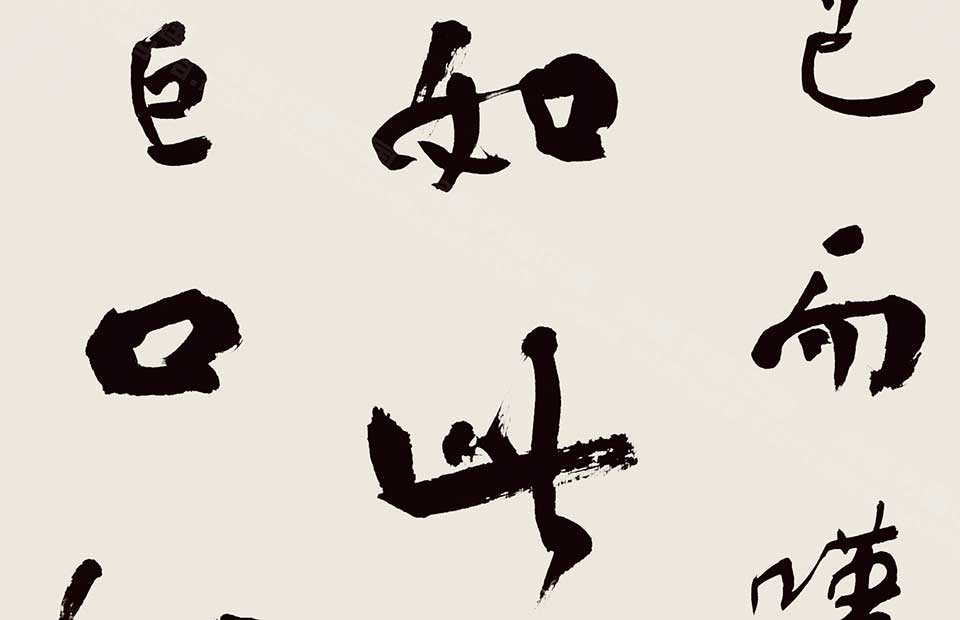 已而嘆
如此
巨口